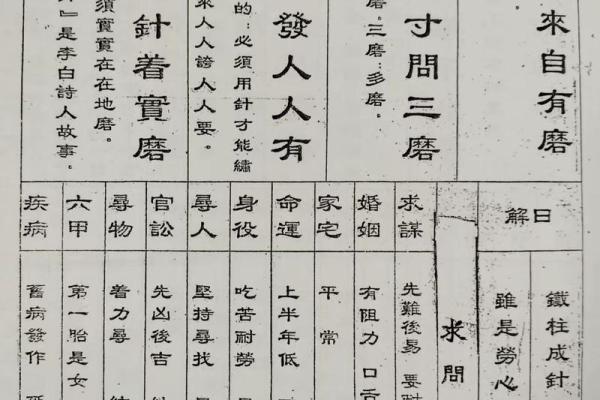 來自有磨
寸問三磨
磨。三磨:多磨。
發人人有
的:必須用針才能繡
來人人誇人人要。
針着實磨
須實實在在地磨。
』是李白詩人故事。
日解
求謀
婚姻
家宅
命運
身役
尋人
官訟
尋物
六甲
疾病
鐵柱成針
雖是勞心
求問
先難後易 要
有阻力 口舌
平常
上半年低
吃苦耐勞
堅持尋找
先凶後吉
着力尋
第一胎是女
舊病發作